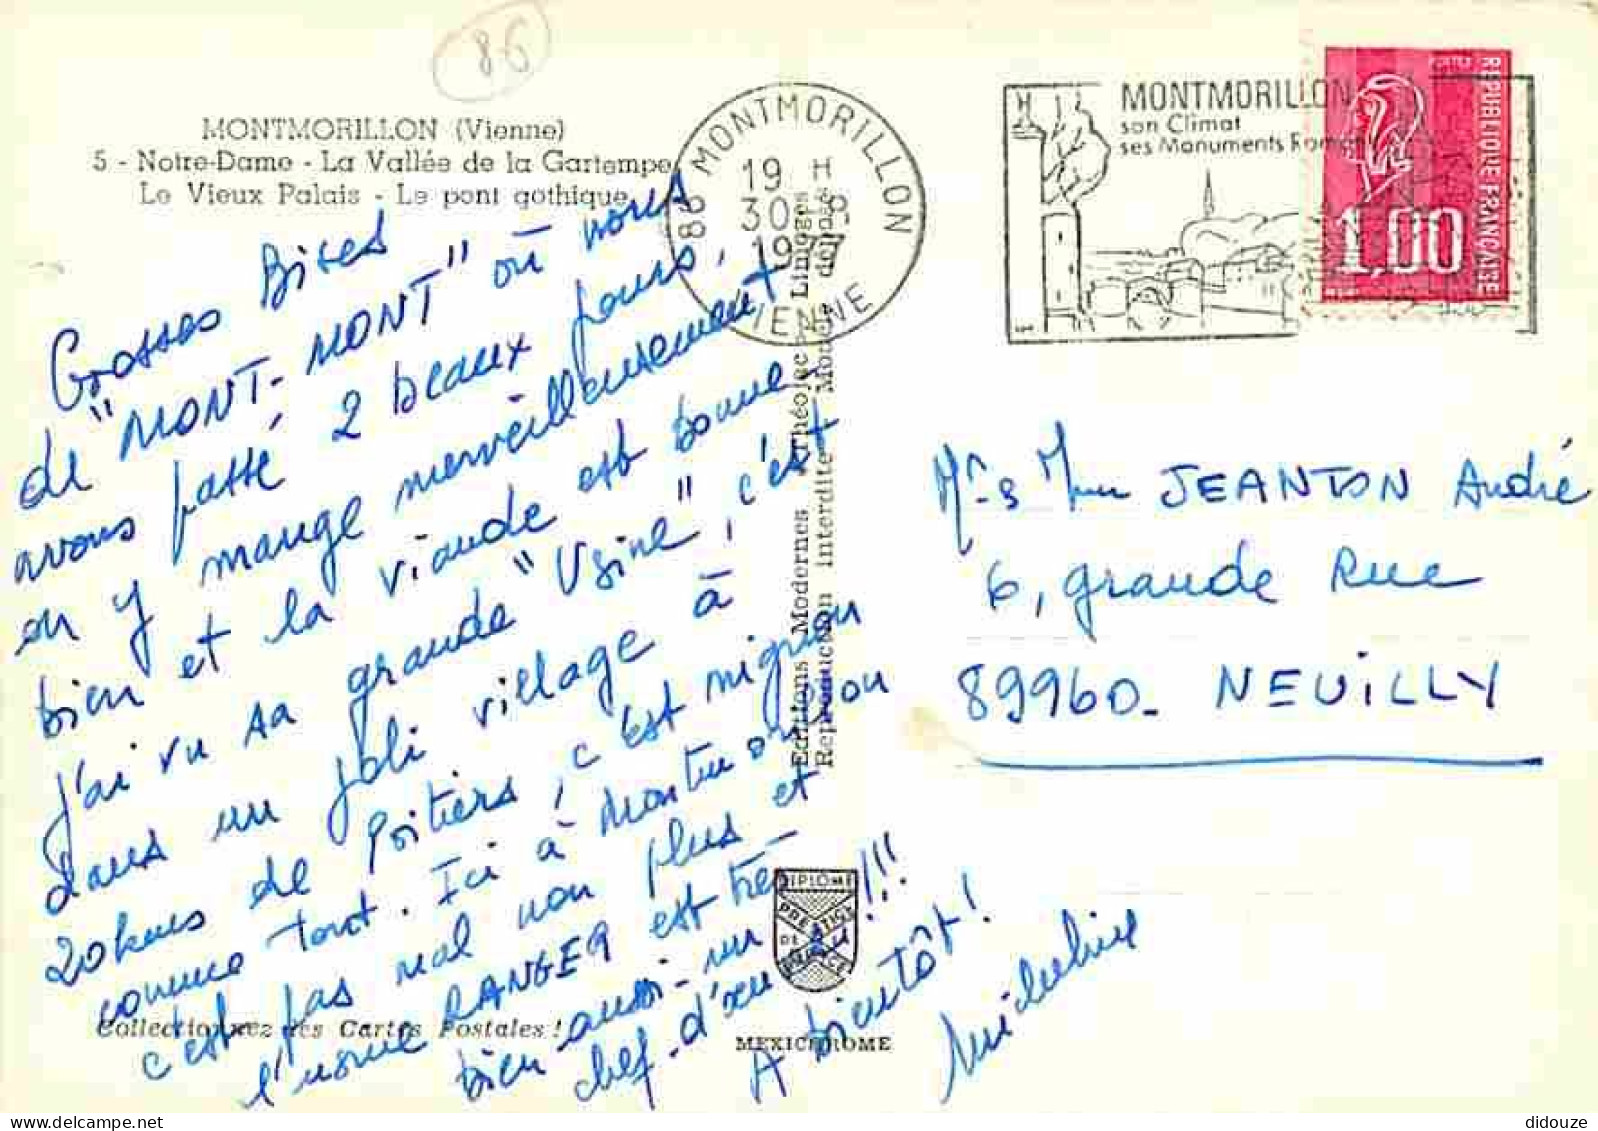 86
MONTMORILLON (Vienne)
5 - Notre-Dame - La Vallée de la Gartempe
Le Vieux Palais - Le pont gothique
Grosses Bises
de "MONT-MONT" où nous
avons passé 2 beaux jours,
on y mange merveilleusement
bien et la viande est bonne,
j'ai vu sa grande "Usine", c'est
dans un joli village à
20 kms de Poitiers, c'est mignon
comme tout. Ici à Montmorillon
c'est pas mal non plus et
l'usine RANGER est très
bien aussi - un
chef-d'œu !!!
A bientôt!
Collectionnez les Cartes Postales !
86 MONTMORILLON
19 H
30
1977
VIENNE
MONTMORILLON
son Climat
ses Monuments Romans
REPUBLIQUE FRANÇAISE
POSTES
1,00
Editions Modernes Théojac Limoges
Reproduction interdite Modèle déposé
DIPLOME
PRESTIGE
DE
MEXICHROME
Mr & Mme JEANTON André
6, grande Rue
89960 - NEUILLY
didouze